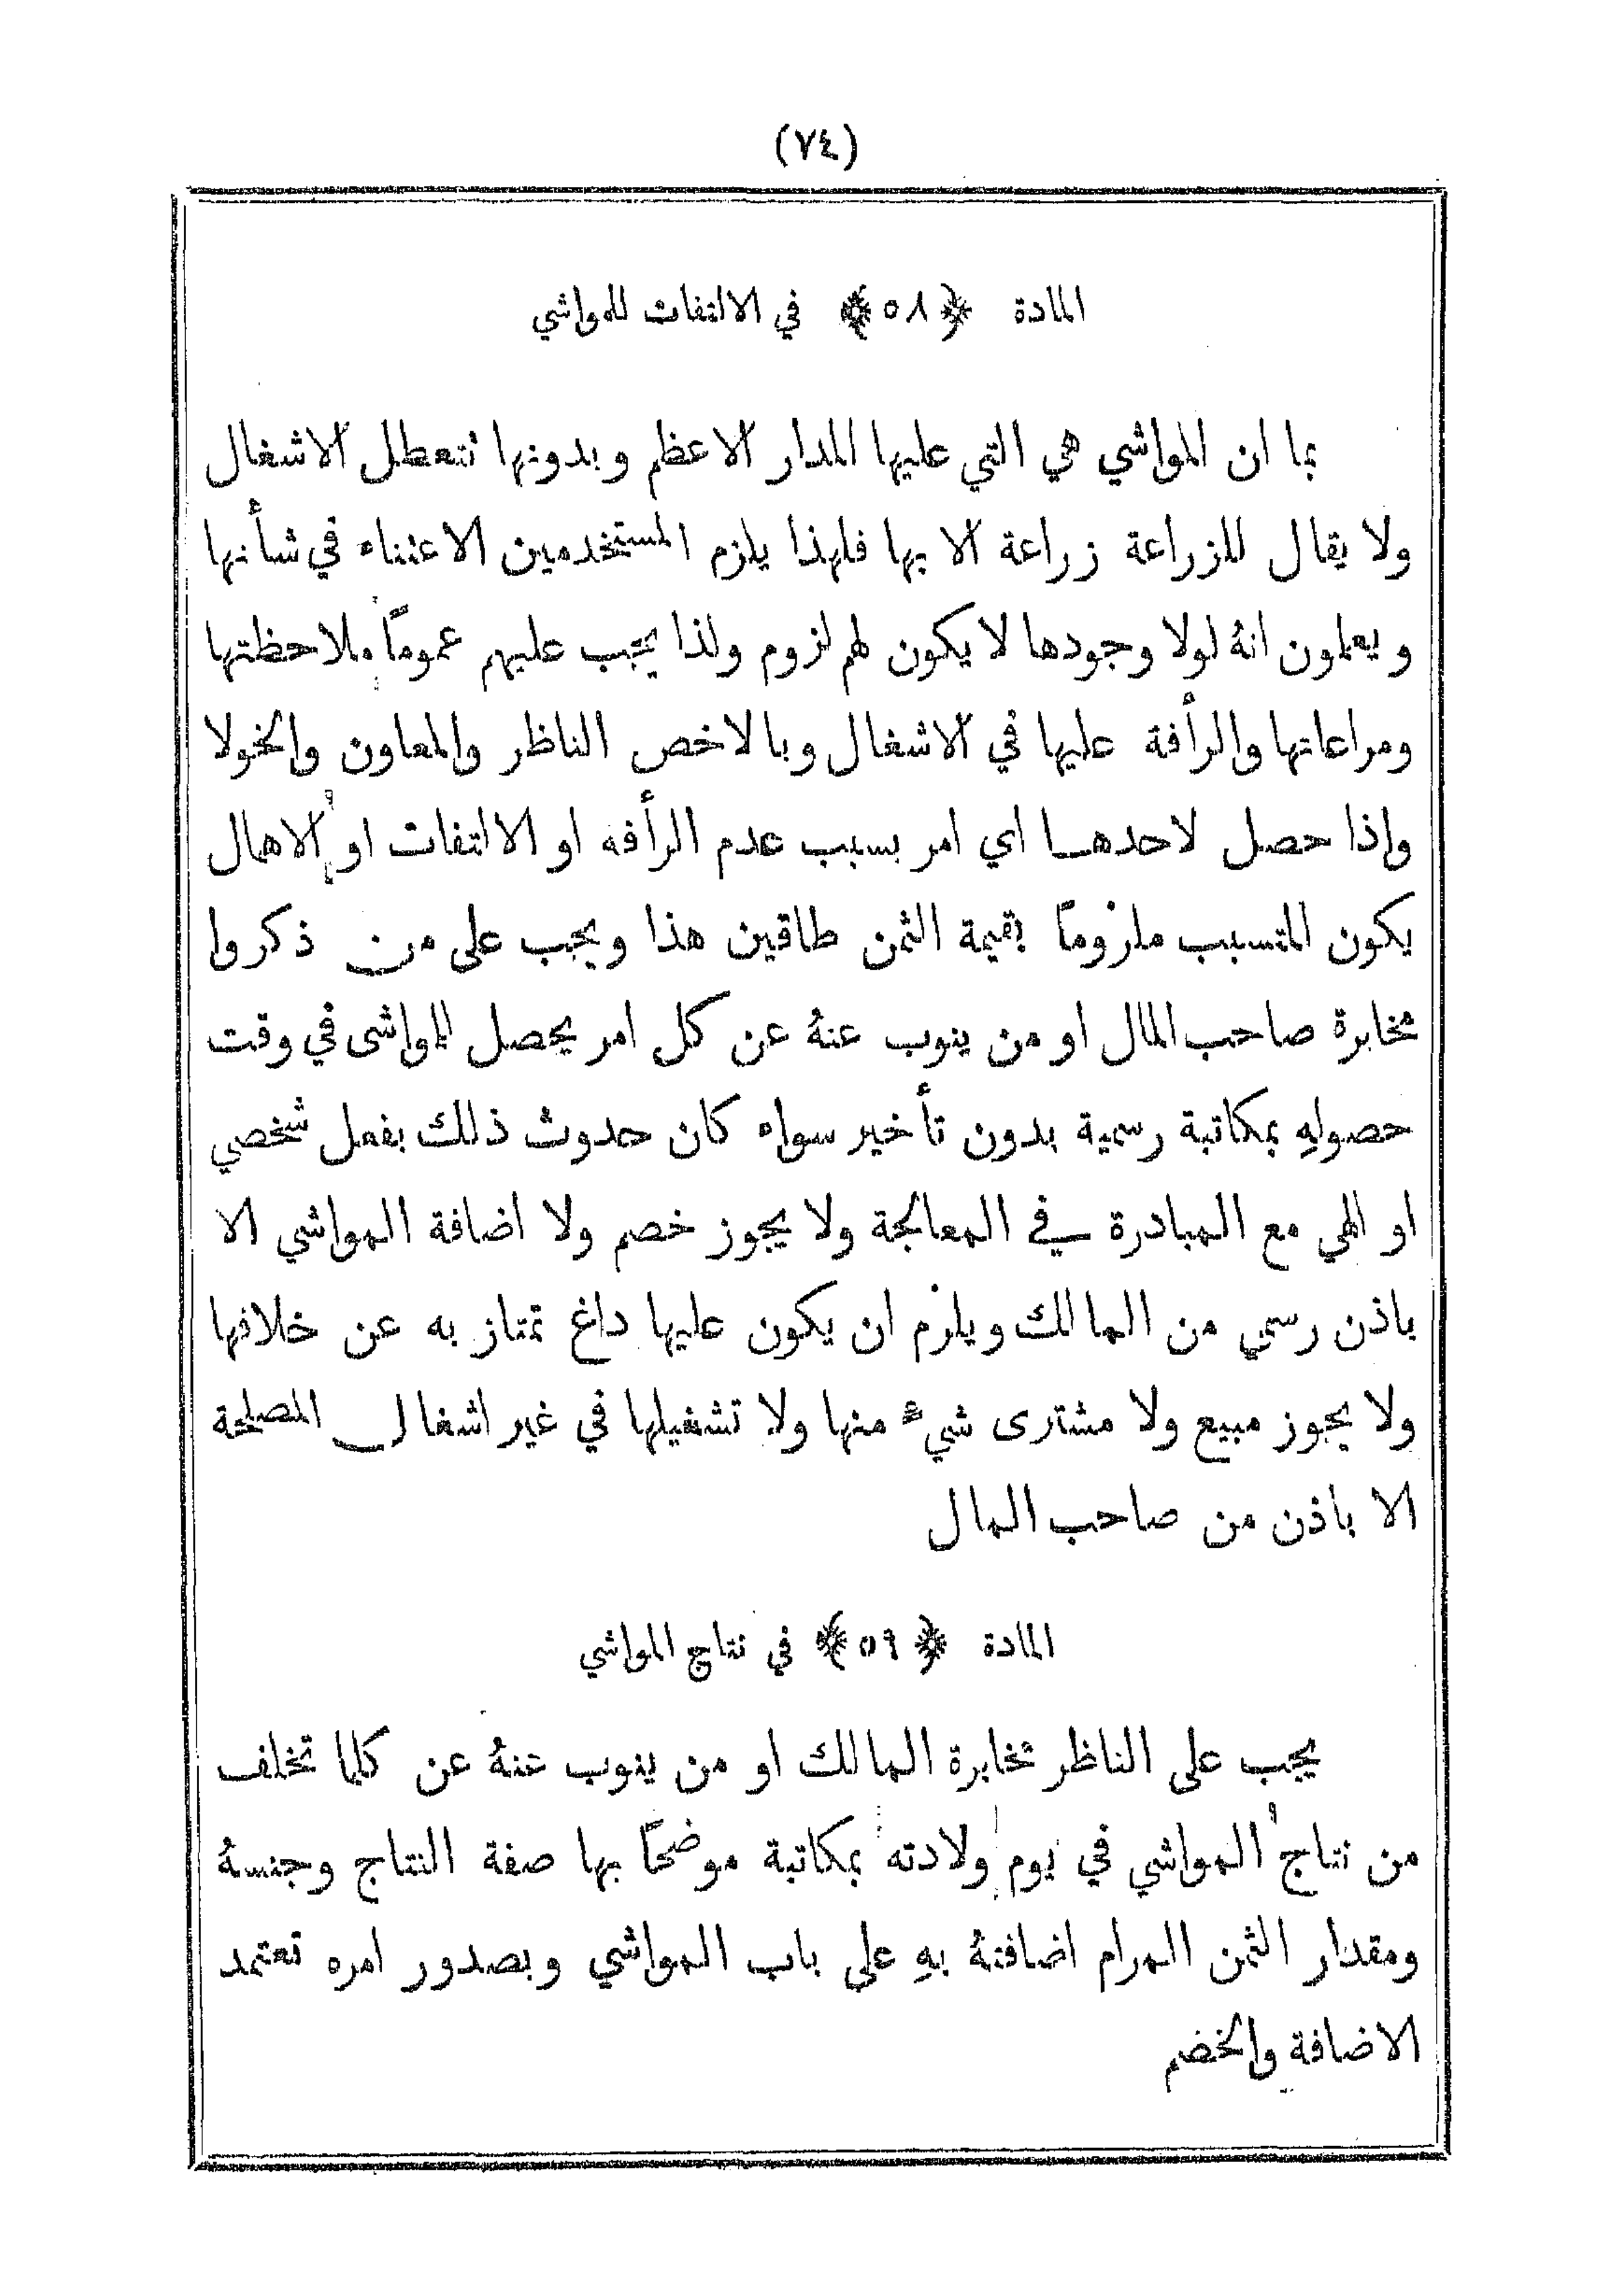 (٧٤)
المادة ﴿٥٨﴾ في الالتفات للمواشي
بما ان المواشي هي التي عليها المدار الاعظم وبدونها تتعطل الاشغال
ولا يقال للزراعة زراعة الا بها فلهذا يلزم المستخدمين الاعتناء في شأنها
ويعلمون انهُ لولا وجودها لا يكون لهم لزوم ولذا يجب عليهم عموماً ملاحظتها
ومراعاتها والرأفة عليها في الاشغال وبالاخص الناظر والمعاون والخولا
وإذا حصل لاحدها اي امر بسبب عدم الرأفه او الالتفات او الاهمال
يكون المتسبب ملزوماً بقيمة الثمن طاقين هذا ويجب على من ذكروا
مخابرة صاحب المال او من ينوب عنهُ عن كل امر يحصل للمواشى في وقت
حصولهِ بمكاتبة رسمية بدون تأخير سواء كان حدوث ذلك بفعل شخصي
او الهي مع المبادرة في المعالجة ولا يجوز خصم ولا اضافة المواشي الا
باذن رسمي من المالك ويلزم ان يكون عليها داغ تمتاز به عن خلافها
ولا يجوز مبيع ولا مشترى شيءٍ منها ولا تشغيلها في غير اشغال المصلحة
الا باذن من صاحب المال
المادة ﴿٥٩﴾ في نتاج المواشي
يجب على الناظر مخابرة المالك او من ينوب عنهُ عن كلما تخلف
من نتاج المواشي في يوم ولادته بمكاتبة موضحاً بها صفة النتاج وجنسهُ
ومقدار الثمن المرام اضافتهُ بهِ على باب المواشي وبصدور امره تعتمد
الاضافة والخضم